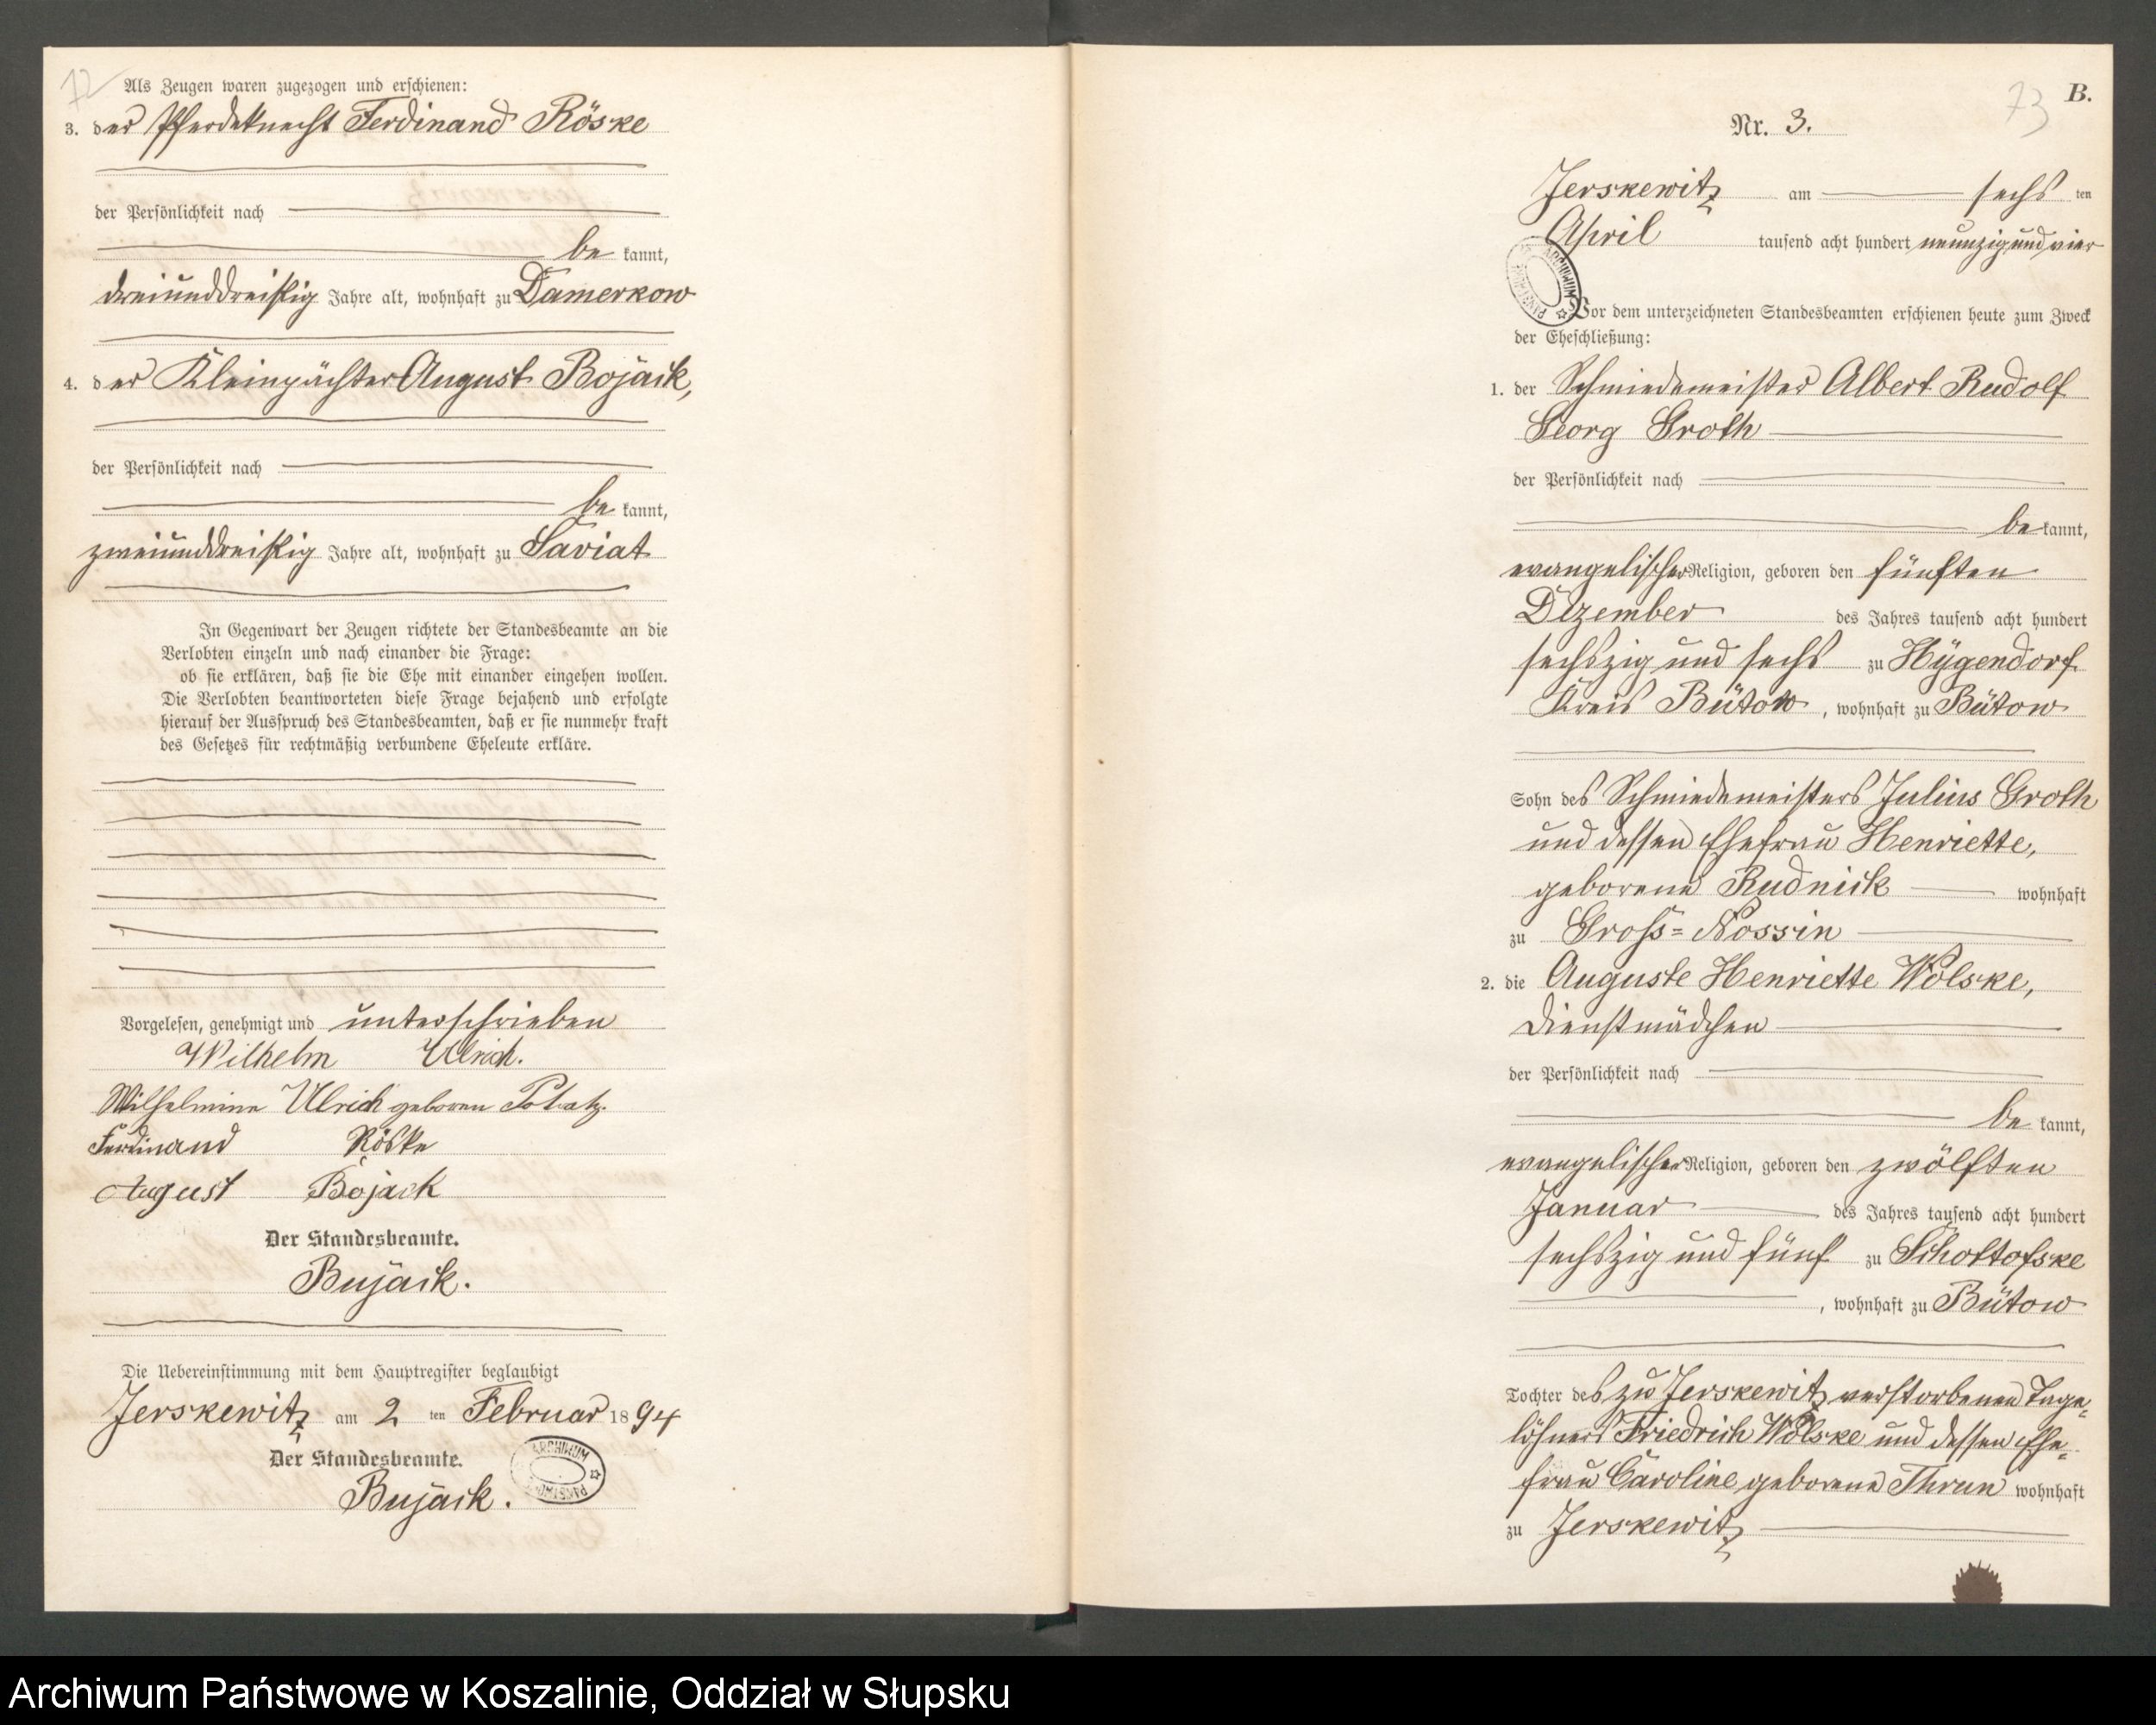 72
Als Zeugen waren zugezogen und erschienen:
3. der Pferdeknecht Ferdinand Röske
der Persönlichkeit nach
be kannt,
dreiunddreißig Jahre alt, wohnhaft zu Damerkow
4. der Kleinpächter August Bojack,
der Persönlichkeit nach
be kannt,
zweiunddreißig Jahre alt, wohnhaft zu Saviat
In Gegenwart der Zeugen richtete der Standesbeamte an die
Verlobten einzeln und nach einander die Frage:
ob sie erklären, daß sie die Ehe mit einander eingehen wollen.
Die Verlobten beantworteten diese Frage bejahend und erfolgte
hierauf der Ausspruch des Standesbeamten, daß er sie nunmehr kraft
des Gesetzes für rechtmäßig verbundene Eheleute erkläre.
Vorgelesen, genehmigt und unterschrieben
Wilhelm Ulrich.
Wilhelmine Ulrich geboren
Ferdinand Röske
August Bojack
Der Standesbeamte.
Bujack.
Die Uebereinstimmung mit dem Hauptregister beglaubigt
Jerskewitz am 2 ten Februar 1894
Der Standesbeamte.
Bujack.
ARCHIWUM
73
B.
Nr. 3.
Jerskewitz am sechs ten
April tausend acht hundert neunzig und vier
ARCHIWUM
Vor dem unterzeichneten Standesbeamten erschienen heute zum Zweck
der Eheschließung:
1. der Schmiedemeister Albert Rudolf
Georg Groth
der Persönlichkeit nach
be kannt,
evangelischer Religion, geboren den fünften
Dezember des Jahres tausend acht hundert
sechszig und sechs zu Hygendorf
Kreis Bütow, wohnhaft zu Bütow
Sohn des Schmiedemeisters Julius Groth
und dessen Ehefrau Henriette,
geborene Rudnick wohnhaft
zu Gross=Nossin
2. die Auguste Henriette Wolske,
Dienstmädchen
der Persönlichkeit nach
be kannt,
evangelischer Religion, geboren den zwölften
Januar des Jahres tausend acht hundert
sechszig und fünf zu Schottofske
, wohnhaft zu Bütow
Tochter des zu Jerskewitz verstorbenen Tage=
löhners Friedrich Wolske und dessen Ehe=
frau Caroline geborene Thrun wohnhaft
zu Jerskewitz
Archiwum Państwowe w Koszalinie, Oddział w Słupsku